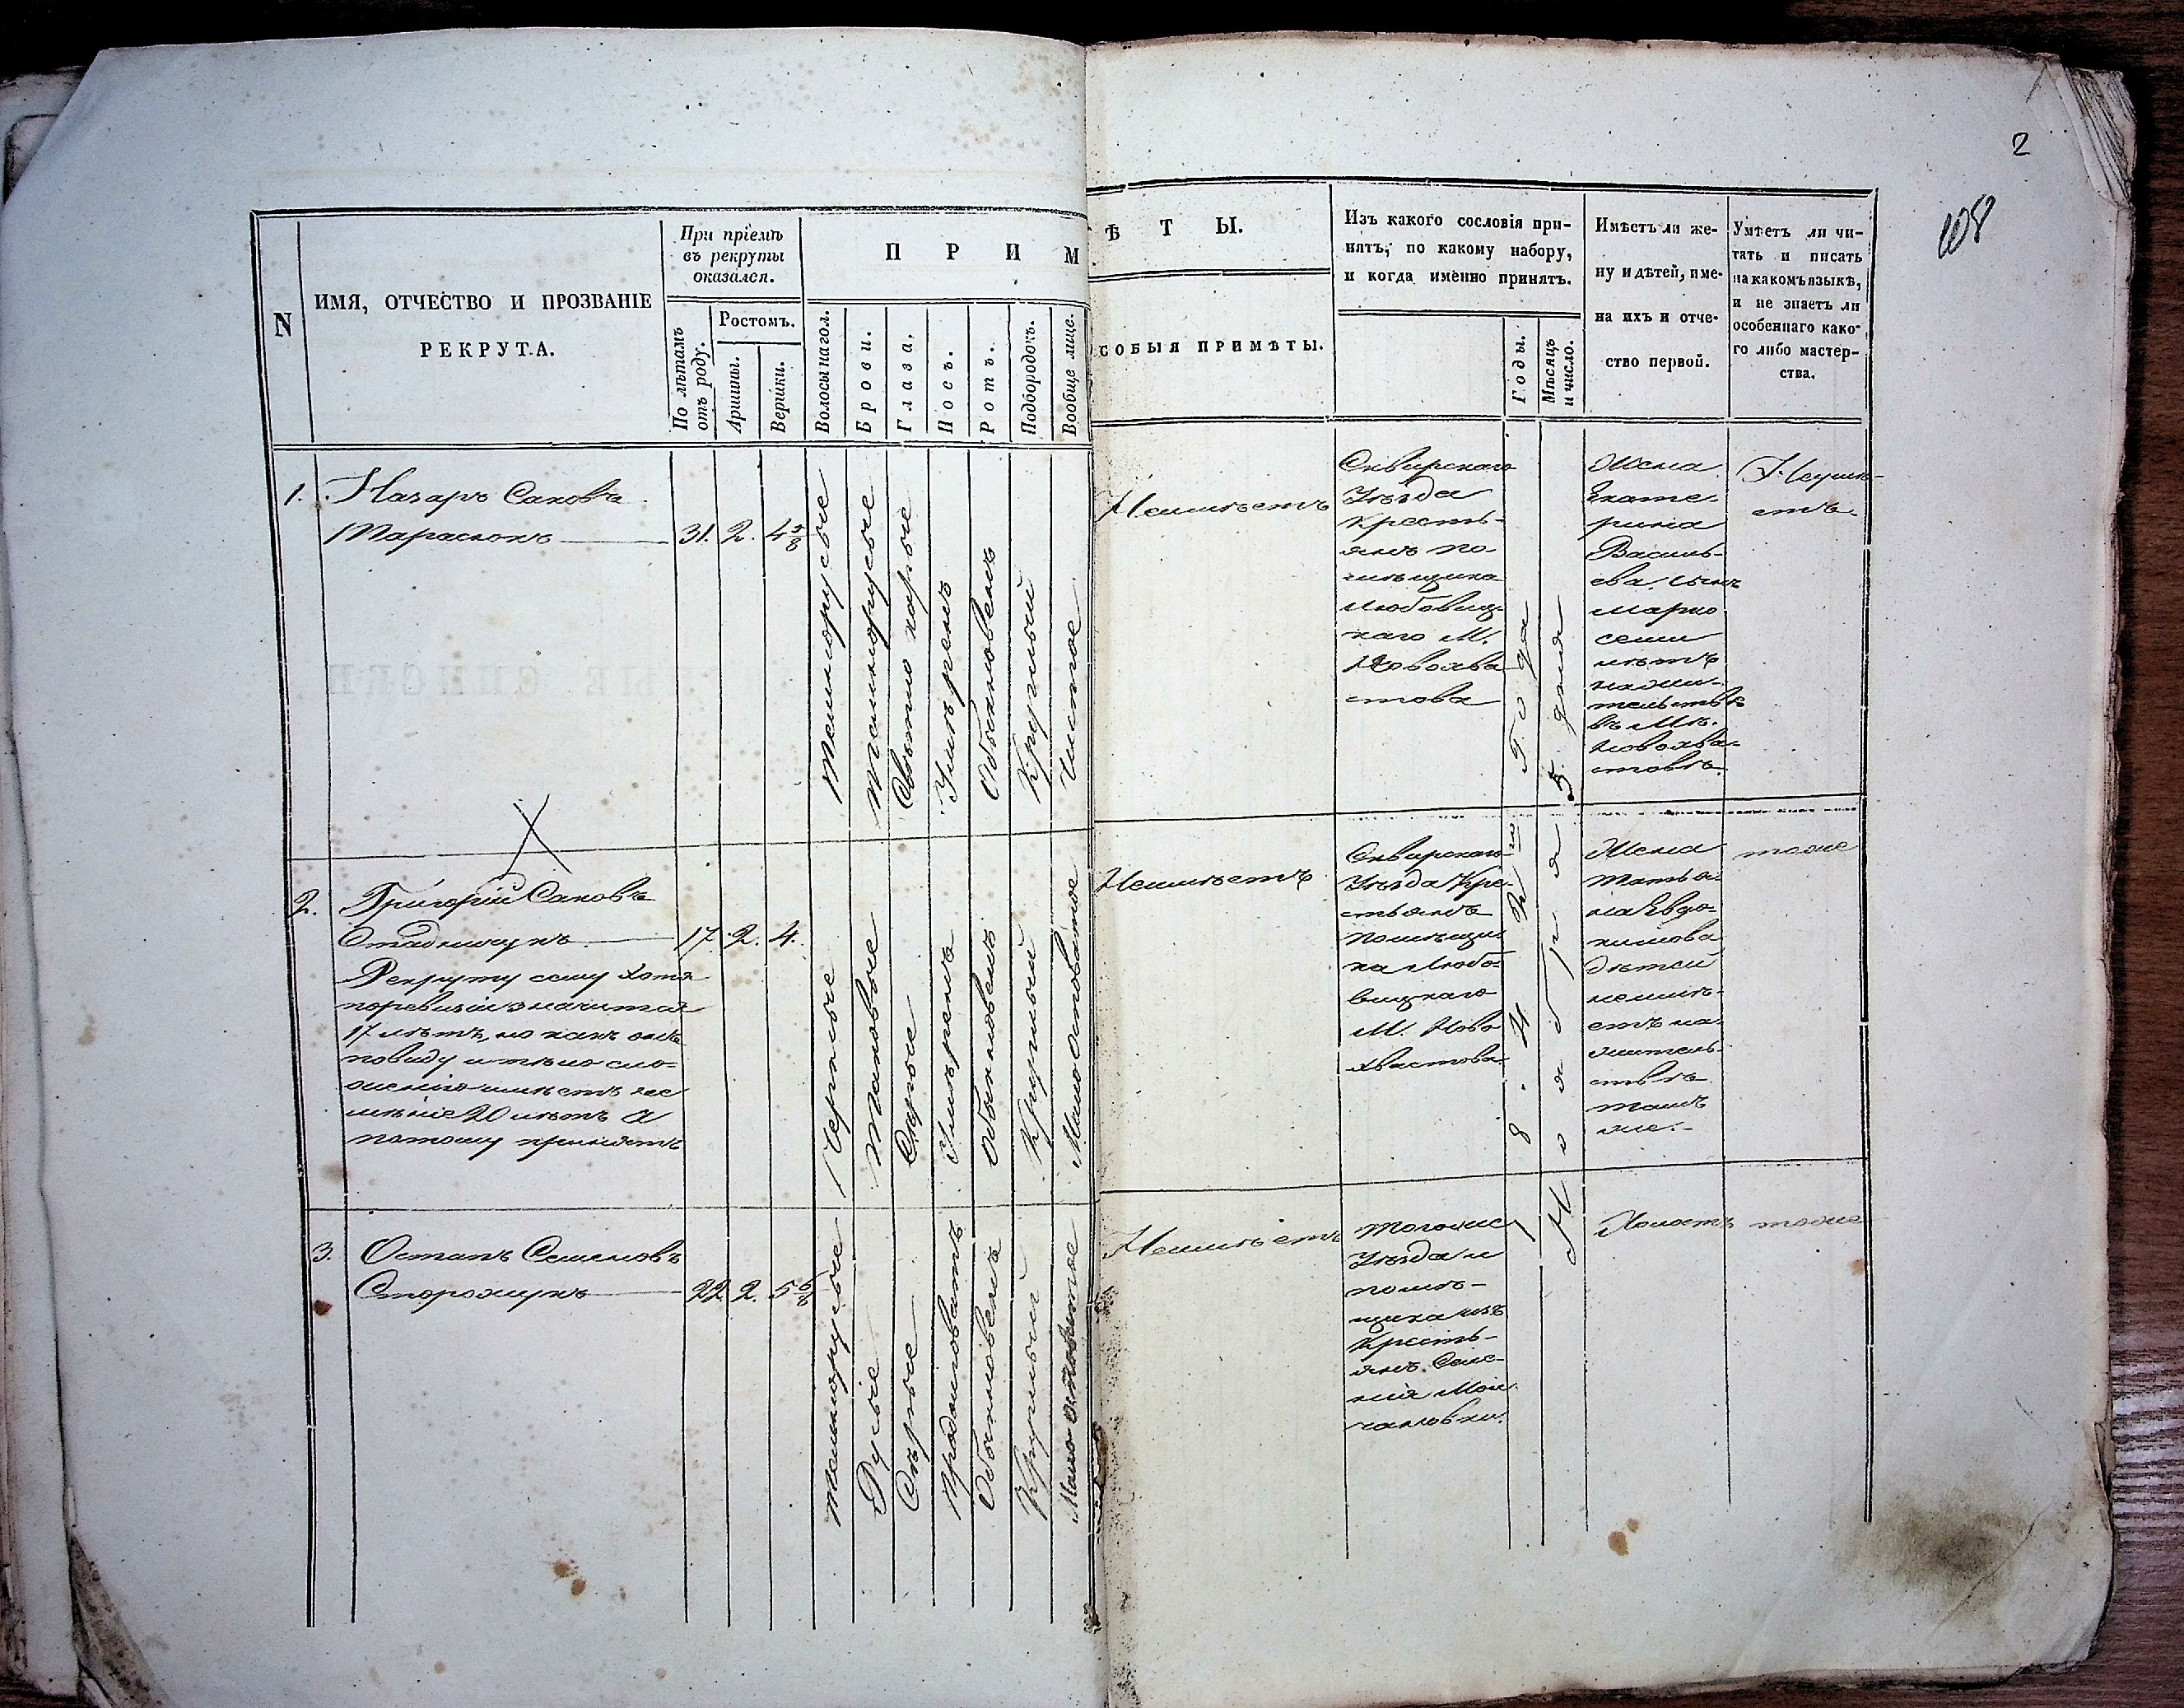 2
108
N
ИМЯ, ОТЧЕСТВО И ПРОЗВАНІЕ
РЕКРУТА.
При пріемѣ
въ рекруты
оказался.
По лѣтамъ
отъ роду.
Ростомъ.
Аршины.
Вершки.
П Р И М
Волосы на гол.
Брови.
Глаза.
Носъ.
Ротъ.
Подбородокъ.
Вообще лице.
Ѣ Т Ы.
СОБЫЯ ПРИМѢТЫ.
Изъ какого сословія при-
нятъ, по какому набору,
и когда именно принятъ.
Годы.
Мѣсяцъ
и число.
Имѣетъ ли же-
ну и дѣтей, име-
на ихъ и отче-
ство первой.
Умѣетъ ли чи-
тать и писать
на какомъ языкѣ,
и не знаетъ ли
особеннаго како-
го либо мастер-
ства.
1.
Назаръ Саковъ
Тарасюкъ
31.
2.
4 5/8
Темнорусые
Темнорусые
Свѣтло карые
Умѣренъ
Обыкновенъ
Круглый
Чистое
Неимѣетъ
Сквирскаго
Уѣзда
Кресть-
янъ по-
мѣщика
Любовиц-
каго М.
Новохва
стова
Жена
Екате-
рина
Василь-
ева, сынъ
Марко
семи
лѣтъ
на жи-
тельствѣ
въ М.
Новохва-
стовѣ.
Неумѣ-
етъ.
2.
Григорій Саковъ
Стадничукъ
17.
2.
4.
Рекруту сему хотя
поревизіи значится
17 лѣтъ, но какъ онъ
повиду и тѣло сло-
женію имѣетъ не
менѣе 20 лѣтъ а
потому принятъ
Черные
Таковые
Сѣрые
Умѣренъ
Обыкновенъ
Круглый
Мало осповатое
Неимѣетъ
Сквирскаго
Уѣзда Кре-
стьянъ
помѣщи-
ка Любо-
вицкаго
М. Ново
хвастова
Года
Ноября 5. дня
Жена
Татья-
на Евдо-
кимова
дѣтей
неимѣ-
етъ на
житель-
ствѣ
тамъ
же.
тоже
3.
Остапъ Семеновъ
Сторожукъ
22.
2.
5 6/8
Темнорусые
Русые
Сѣрые
Продолговатъ
Обыкновенъ
Круглый
Мало осповатое
Неимѣетъ
Тогожъ
Уѣзда и
помѣ-
щика изъ
Кресть-
янъ Селе-
нія Мол
чановки.
Холостъ
тоже